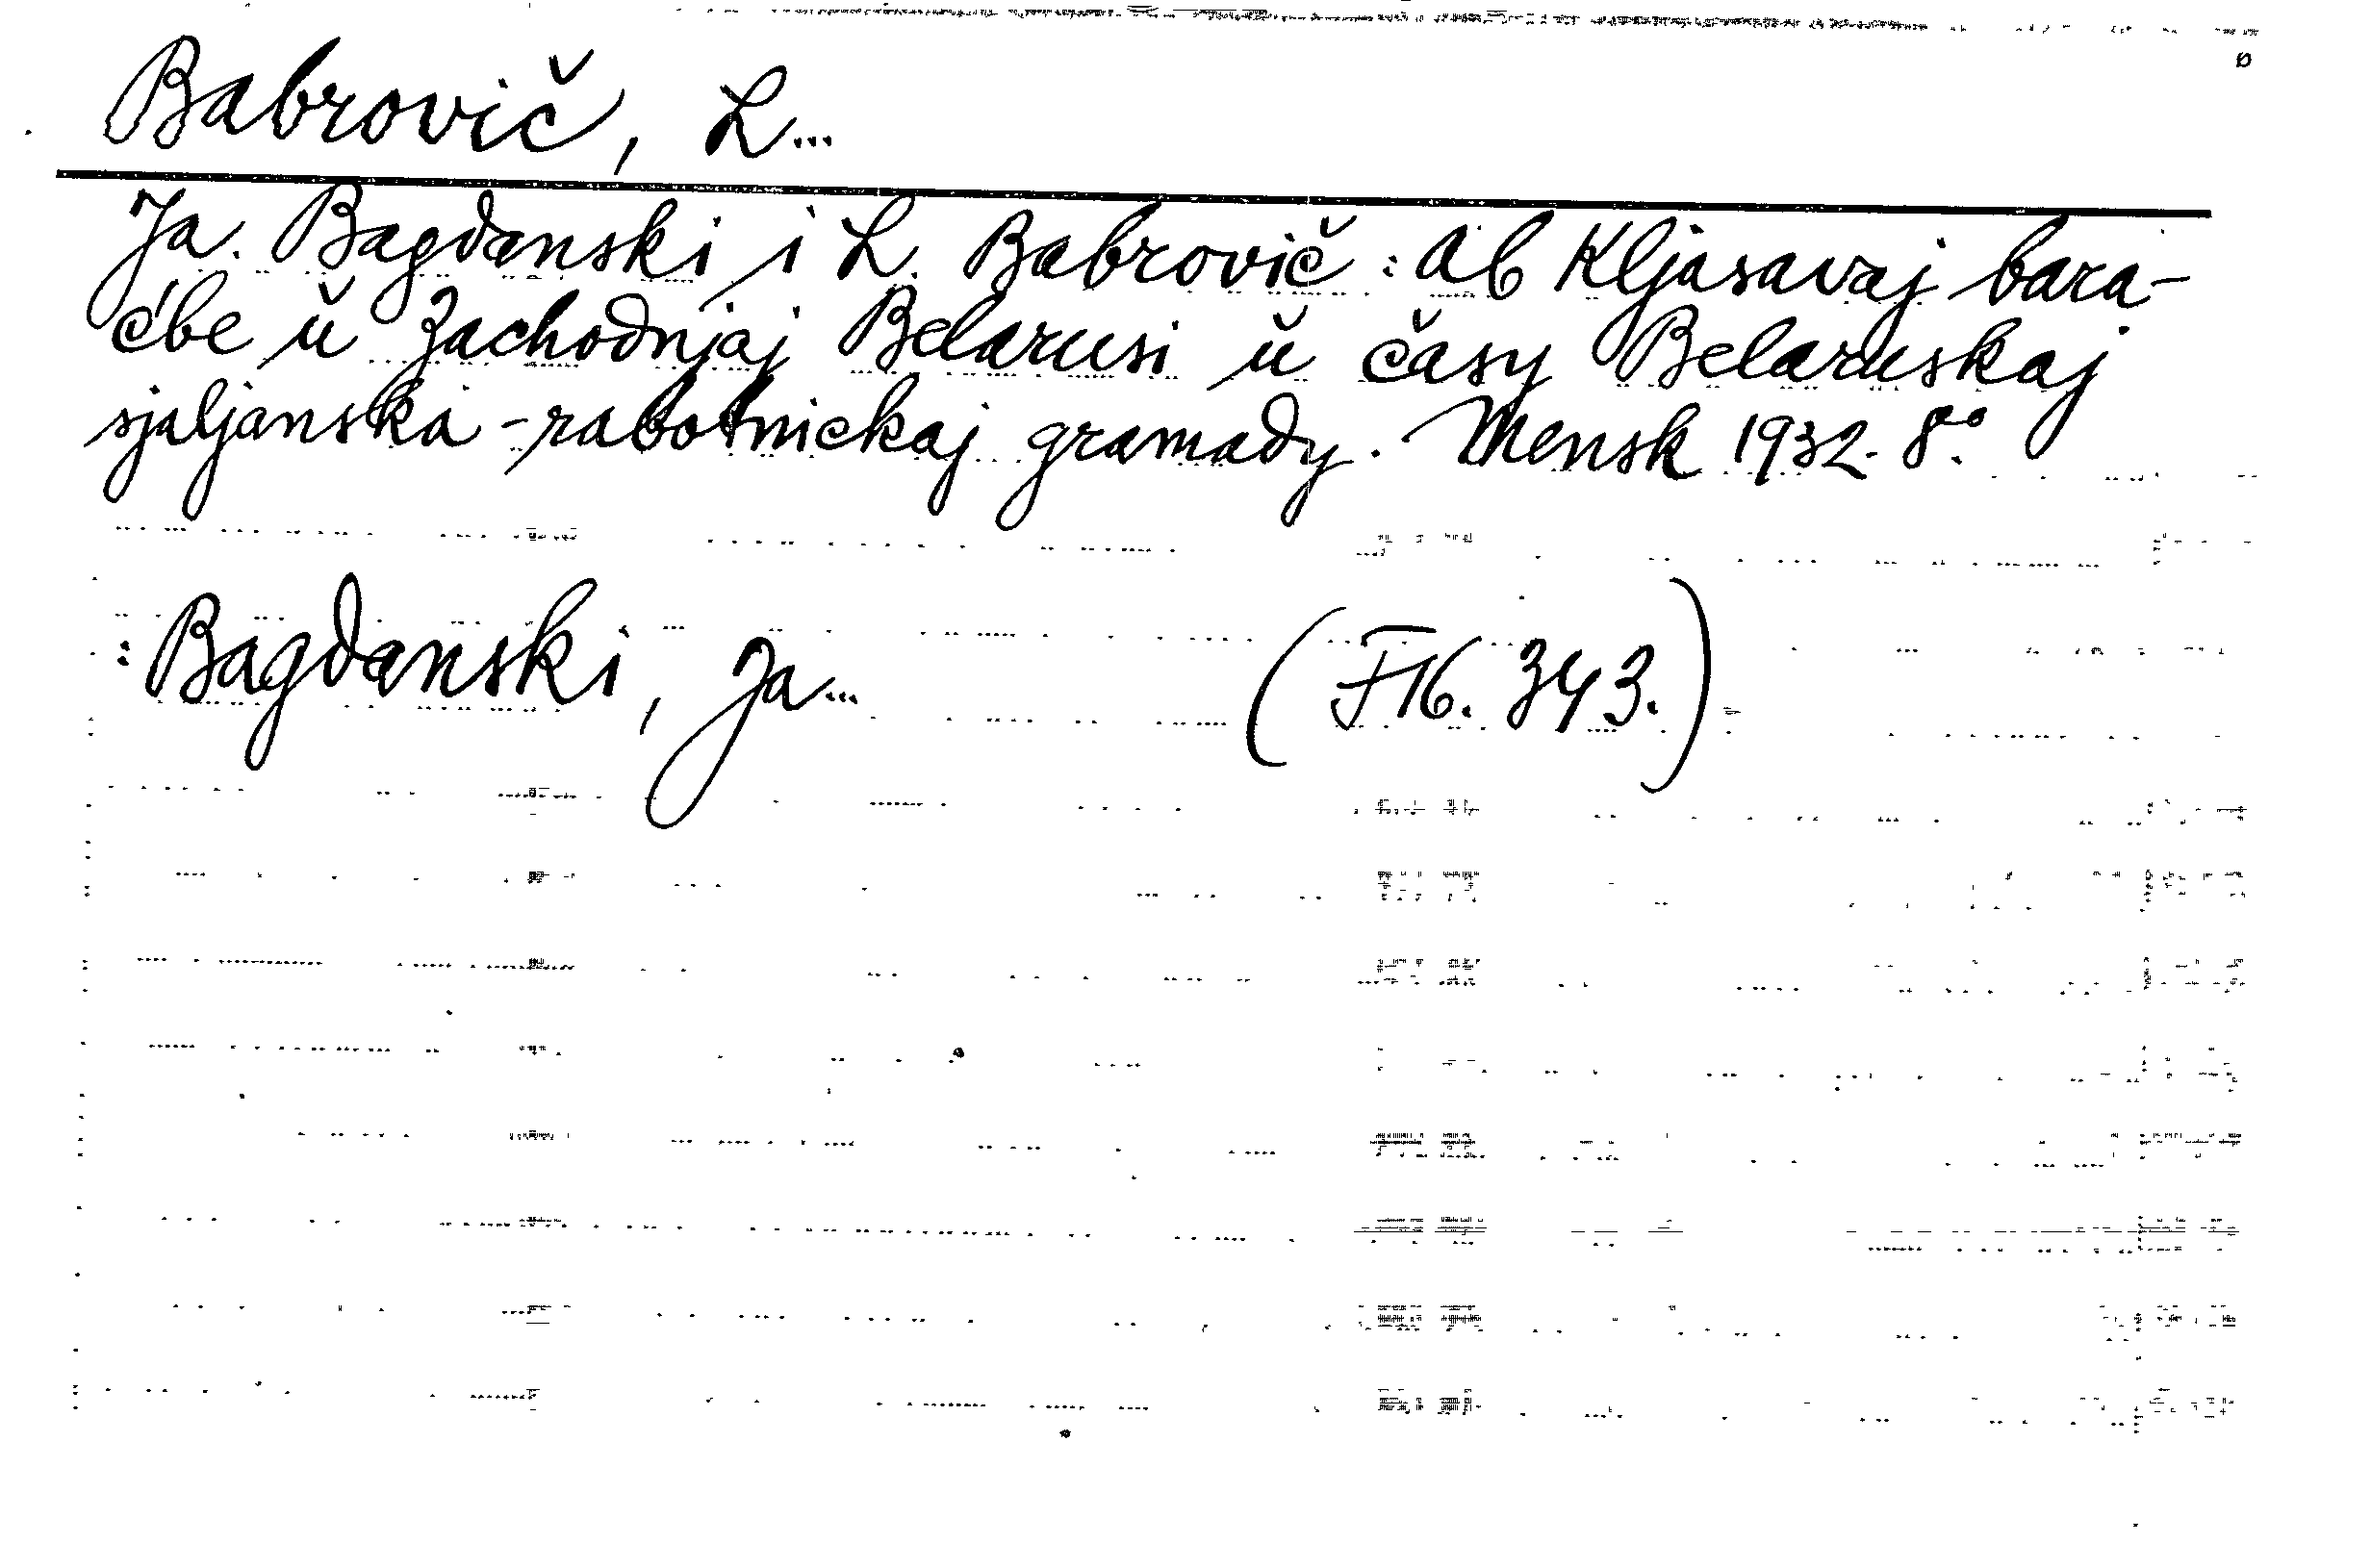 Babrovič, L...
Ja. Bagdanski i L. Babrovič: Ab kljasavaj bara-
c'be ŭ Zachodnjaj Belarusi ŭ časy Belaruskaj
sjaljanska-rabotnickaj gramady. Mensk 1932. 8:o.
: Bagdanski, Ja... (F16. 343.)